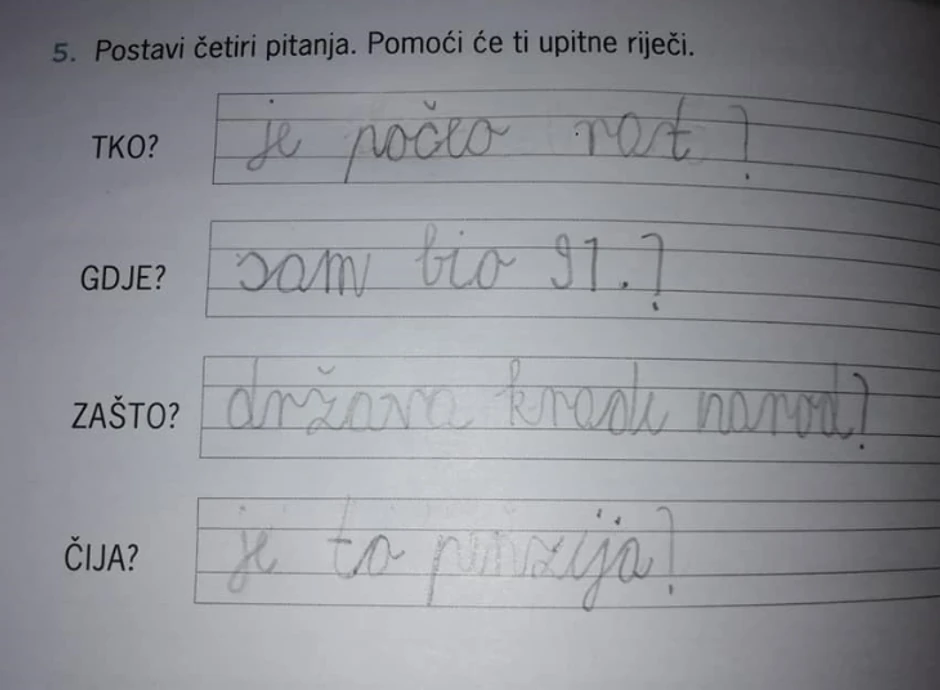 5. Postavi četiri pitanja. Pomoći će ti upitne riječi.
TKO? je počeo rat?
GDJE? sam bio 91.?
ZAŠTO? država krade narod?
ČIJA? je to penzija?